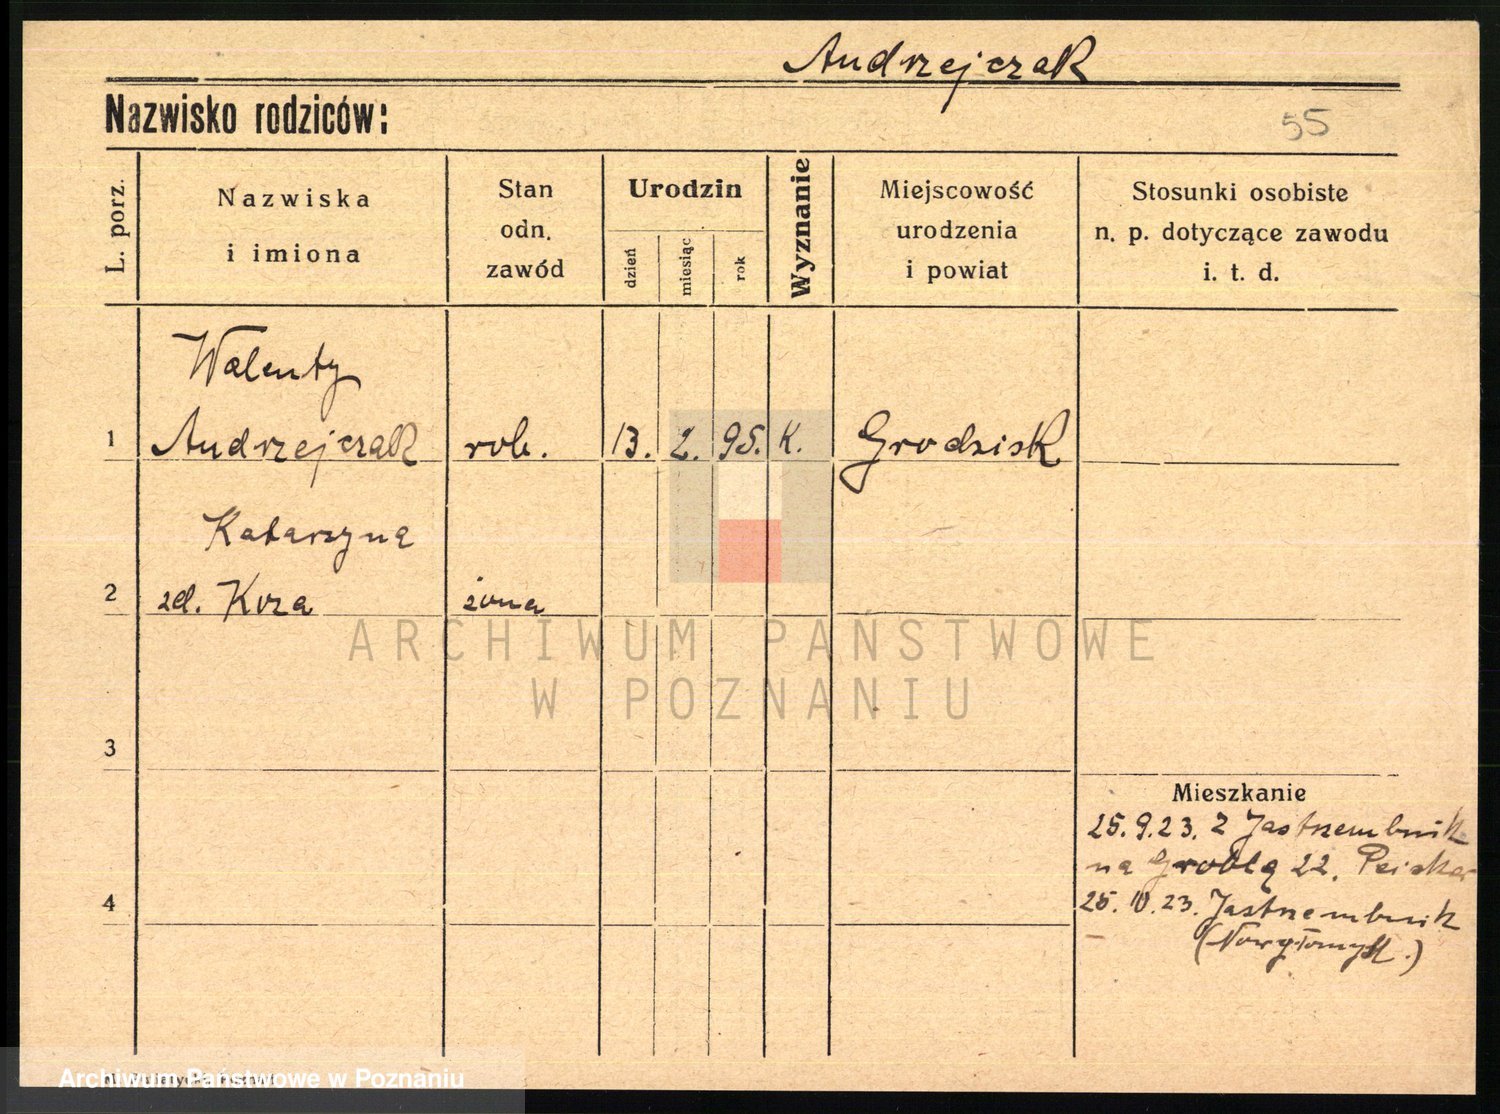 Andrzejczak
Nazwisko rodziców:
55
L. porz.
Nazwiska
i imiona
Stan
odn.
zawód
Urodzin
dzień
miesiąc
rok
Wyznanie
Miejscowość
urodzenia
i powiat
Stosunki osobiste
n. p. dotyczące zawodu
i. t. d.
Walenty
1 Andrzejczak rob. 13. 2. 95. K. Grodzisk
Katarzyna
2 zd. Koza żona
ARCHIWUM PAŃSTWOWE
W POZNANIU
3
Mieszkanie
25.9.23. z Jastrzembnik
na Groblą 22. Peisker
4
25.10.23. Jastrzembnik
(Nowytomysl.)
Archiwum Państwowe w Poznaniu